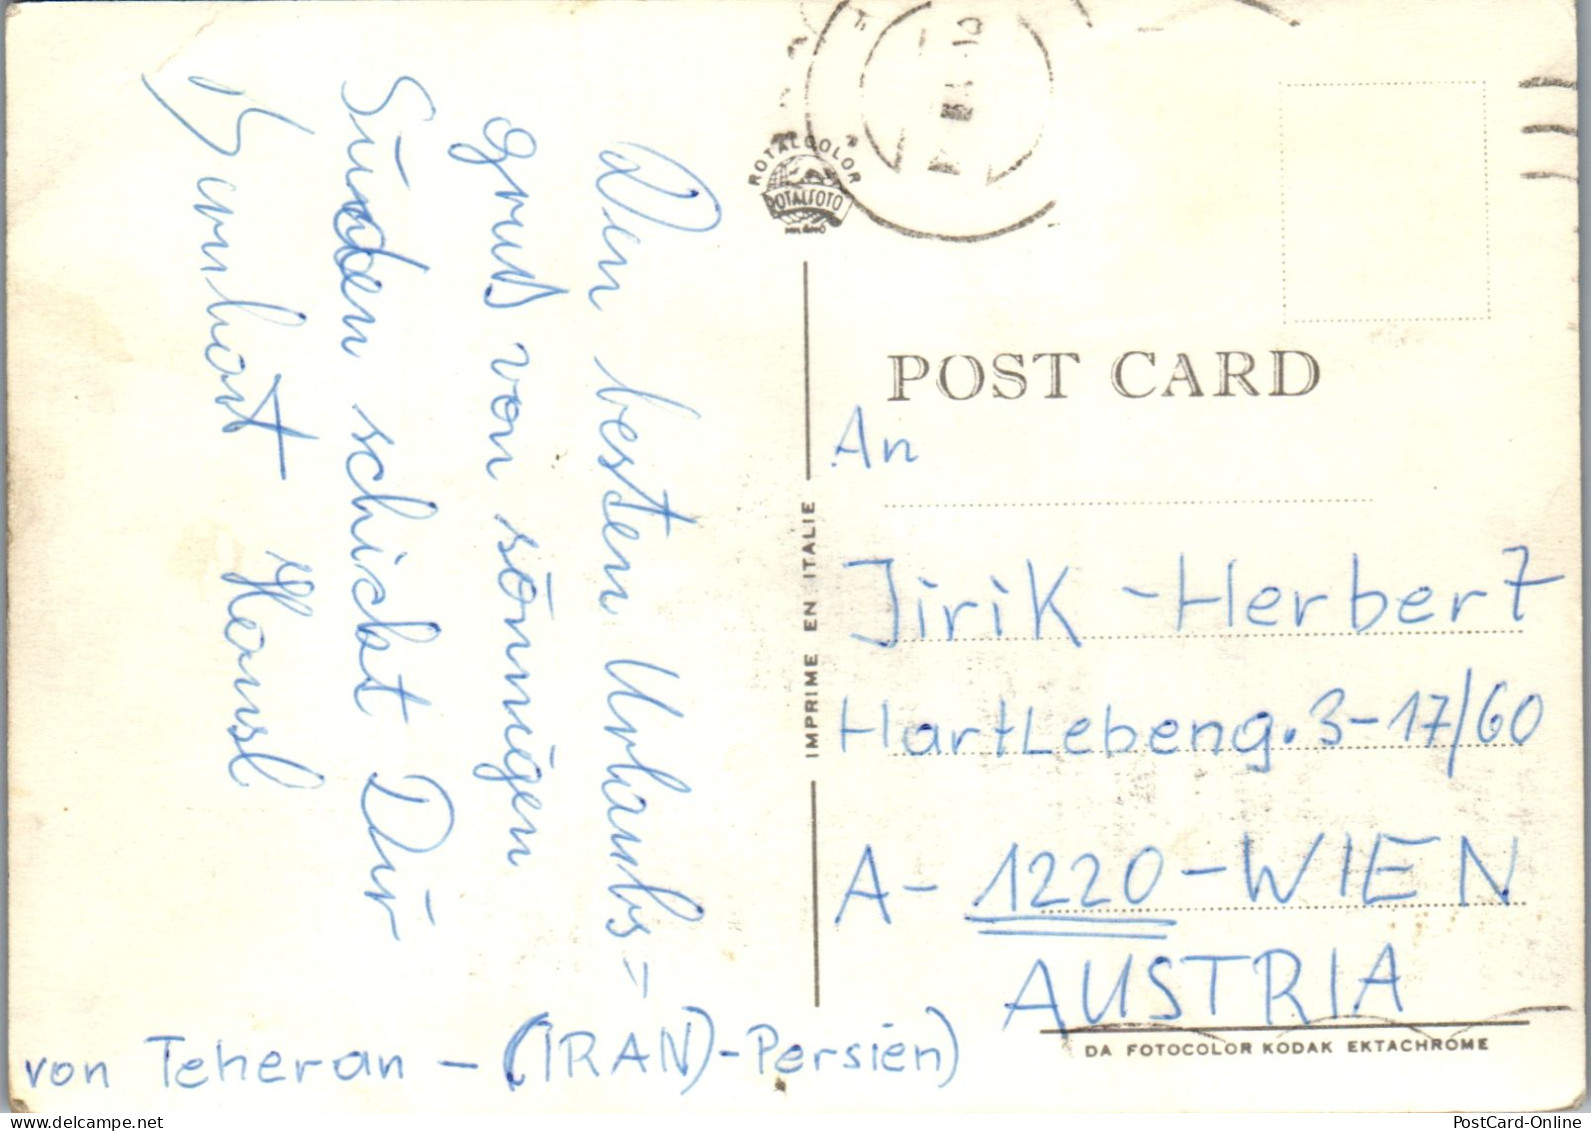 Den besten Urlaubs=
gruß von sonnigen
Süden schickt Dir
Bernhart Hansl
von Teheran - (IRAN) - Persien)
ROTALCOLOR
ROTALFOTO
MILANO
IMPRIME EN ITALIE
POST CARD
An
Jirik - Herbert
Hartlebeng. 3-17/60
A- 1220 - WIEN
AUSTRIA
DA FOTOCOLOR KODAK EKTACHROME
PostCard-Online
www.delcampe.net